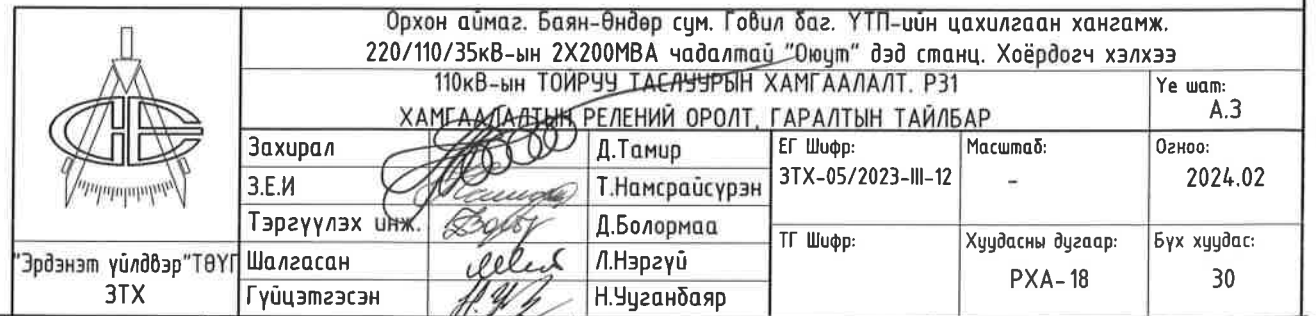 Орхон аймаг. Баян-Өндөр сум. Говил баг. ҮТП-ийн цахилгаан хангамж.
220/110/35кВ-ын 2Х200МВА чадалтай "Оюут" дэд станц. Хоёрдогч хэлхээ
110кВ-ын ТОЙРУУ ТАСЛУУРЫН ХАМГААЛАЛТ. Р31
ХАМГААЛАЛТЫН РЕЛЕНИЙ ОРОЛТ, ГАРАЛТЫН ТАЙЛБАР
Үе шат:
А.З
Захирал
Д.Тамир
З.Е.И
Т.Намсрайсүрэн
Тэргүүлэх инж.
Д.Болормаа
Шалгасан
Л.Нэргүй
Гүйцэтгэсэн
Н.Ууганбаяр
ЕГ Шифр:
ЗТХ-05/2023-III-12
Масштаб:
-
Огноо:
2024.02
ТГ Шифр:
Хуудасны дугаар:
РХА-18
Бүх хуудас:
30
"Эрдэнэт үйлдвэр"ТӨҮГ
ЗТХ